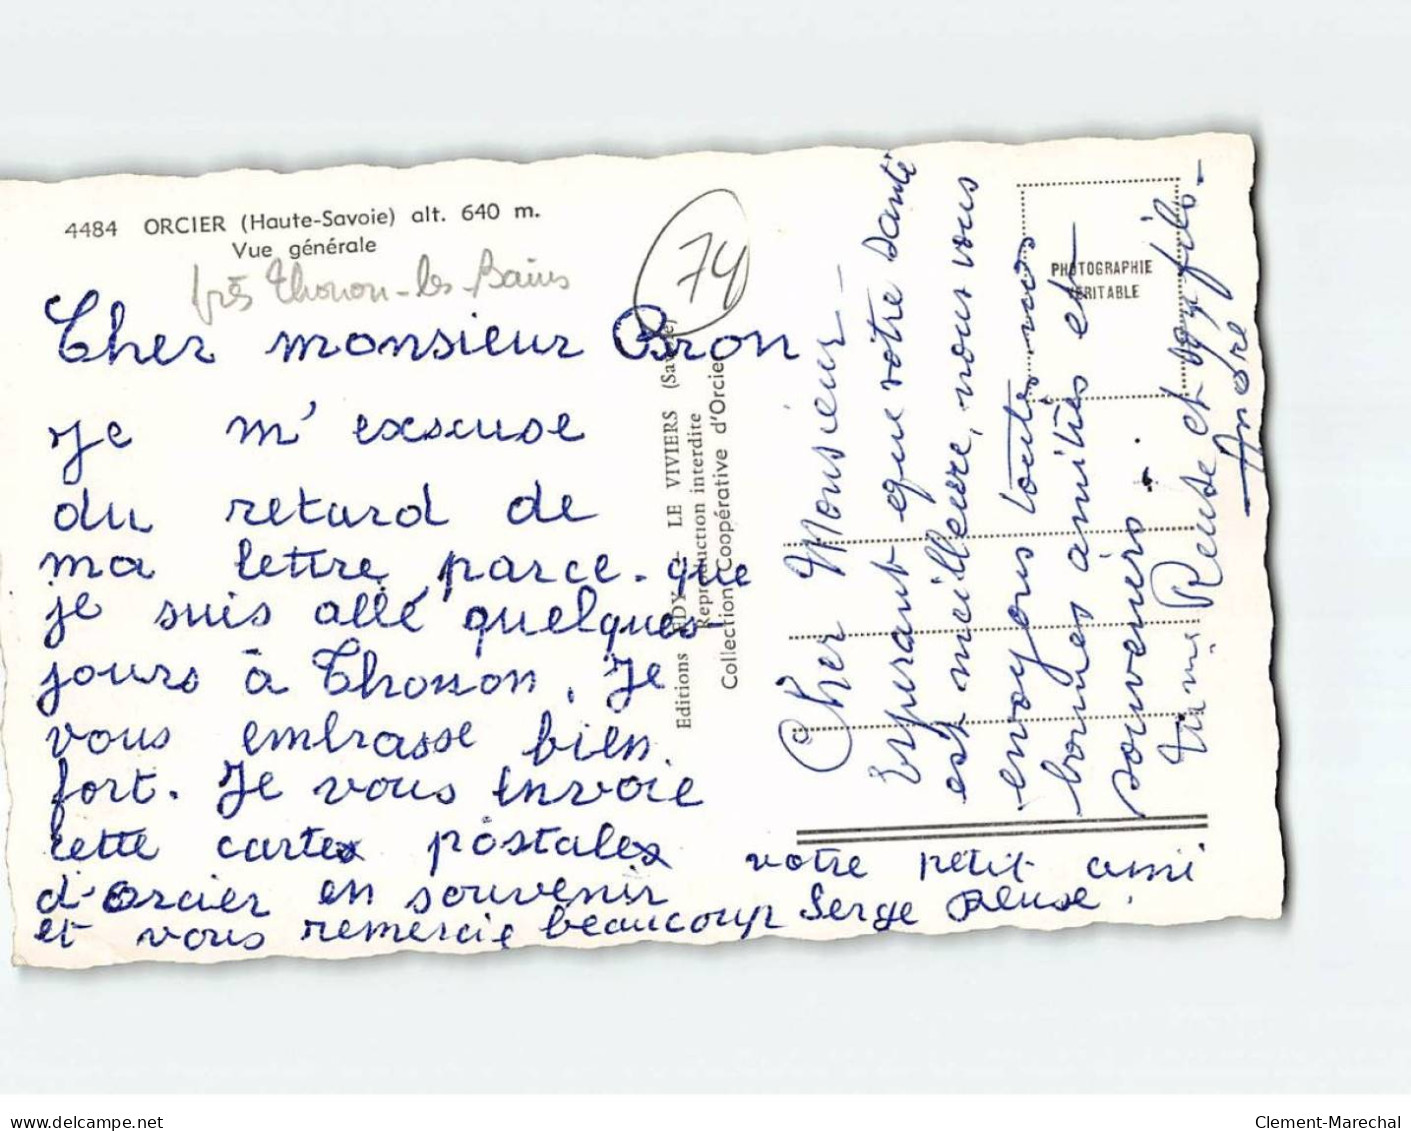 4484 ORCIER (Haute-Savoie) alt. 640 m.
Vue générale
près Thonon-les-Bains
74
Cher monsieur Bron
je m'excuse
du retard de
ma lettre parce-que
je suis allé quelques
jours à Thonon. Je
vous embrasse bien
fort. Je vous envoie
cette carte postale
d'Orcier en souvenir votre petit ami
et vous remercie beaucoup Serge Reuse.
Editions EDY - LE VIVIERS (Savoie)
Reproduction interdite
Collection Coopérative d'Orcier
PHOTOGRAPHIE
VÉRITABLE
Cher Monsieur
Espérant que votre santé
est meilleure, nous vous
envoyons toutes nos
bonnes amitiés et
souvenirs.
Mme Reuse et son fils -
André
delcampe.net
Clement-Marechal